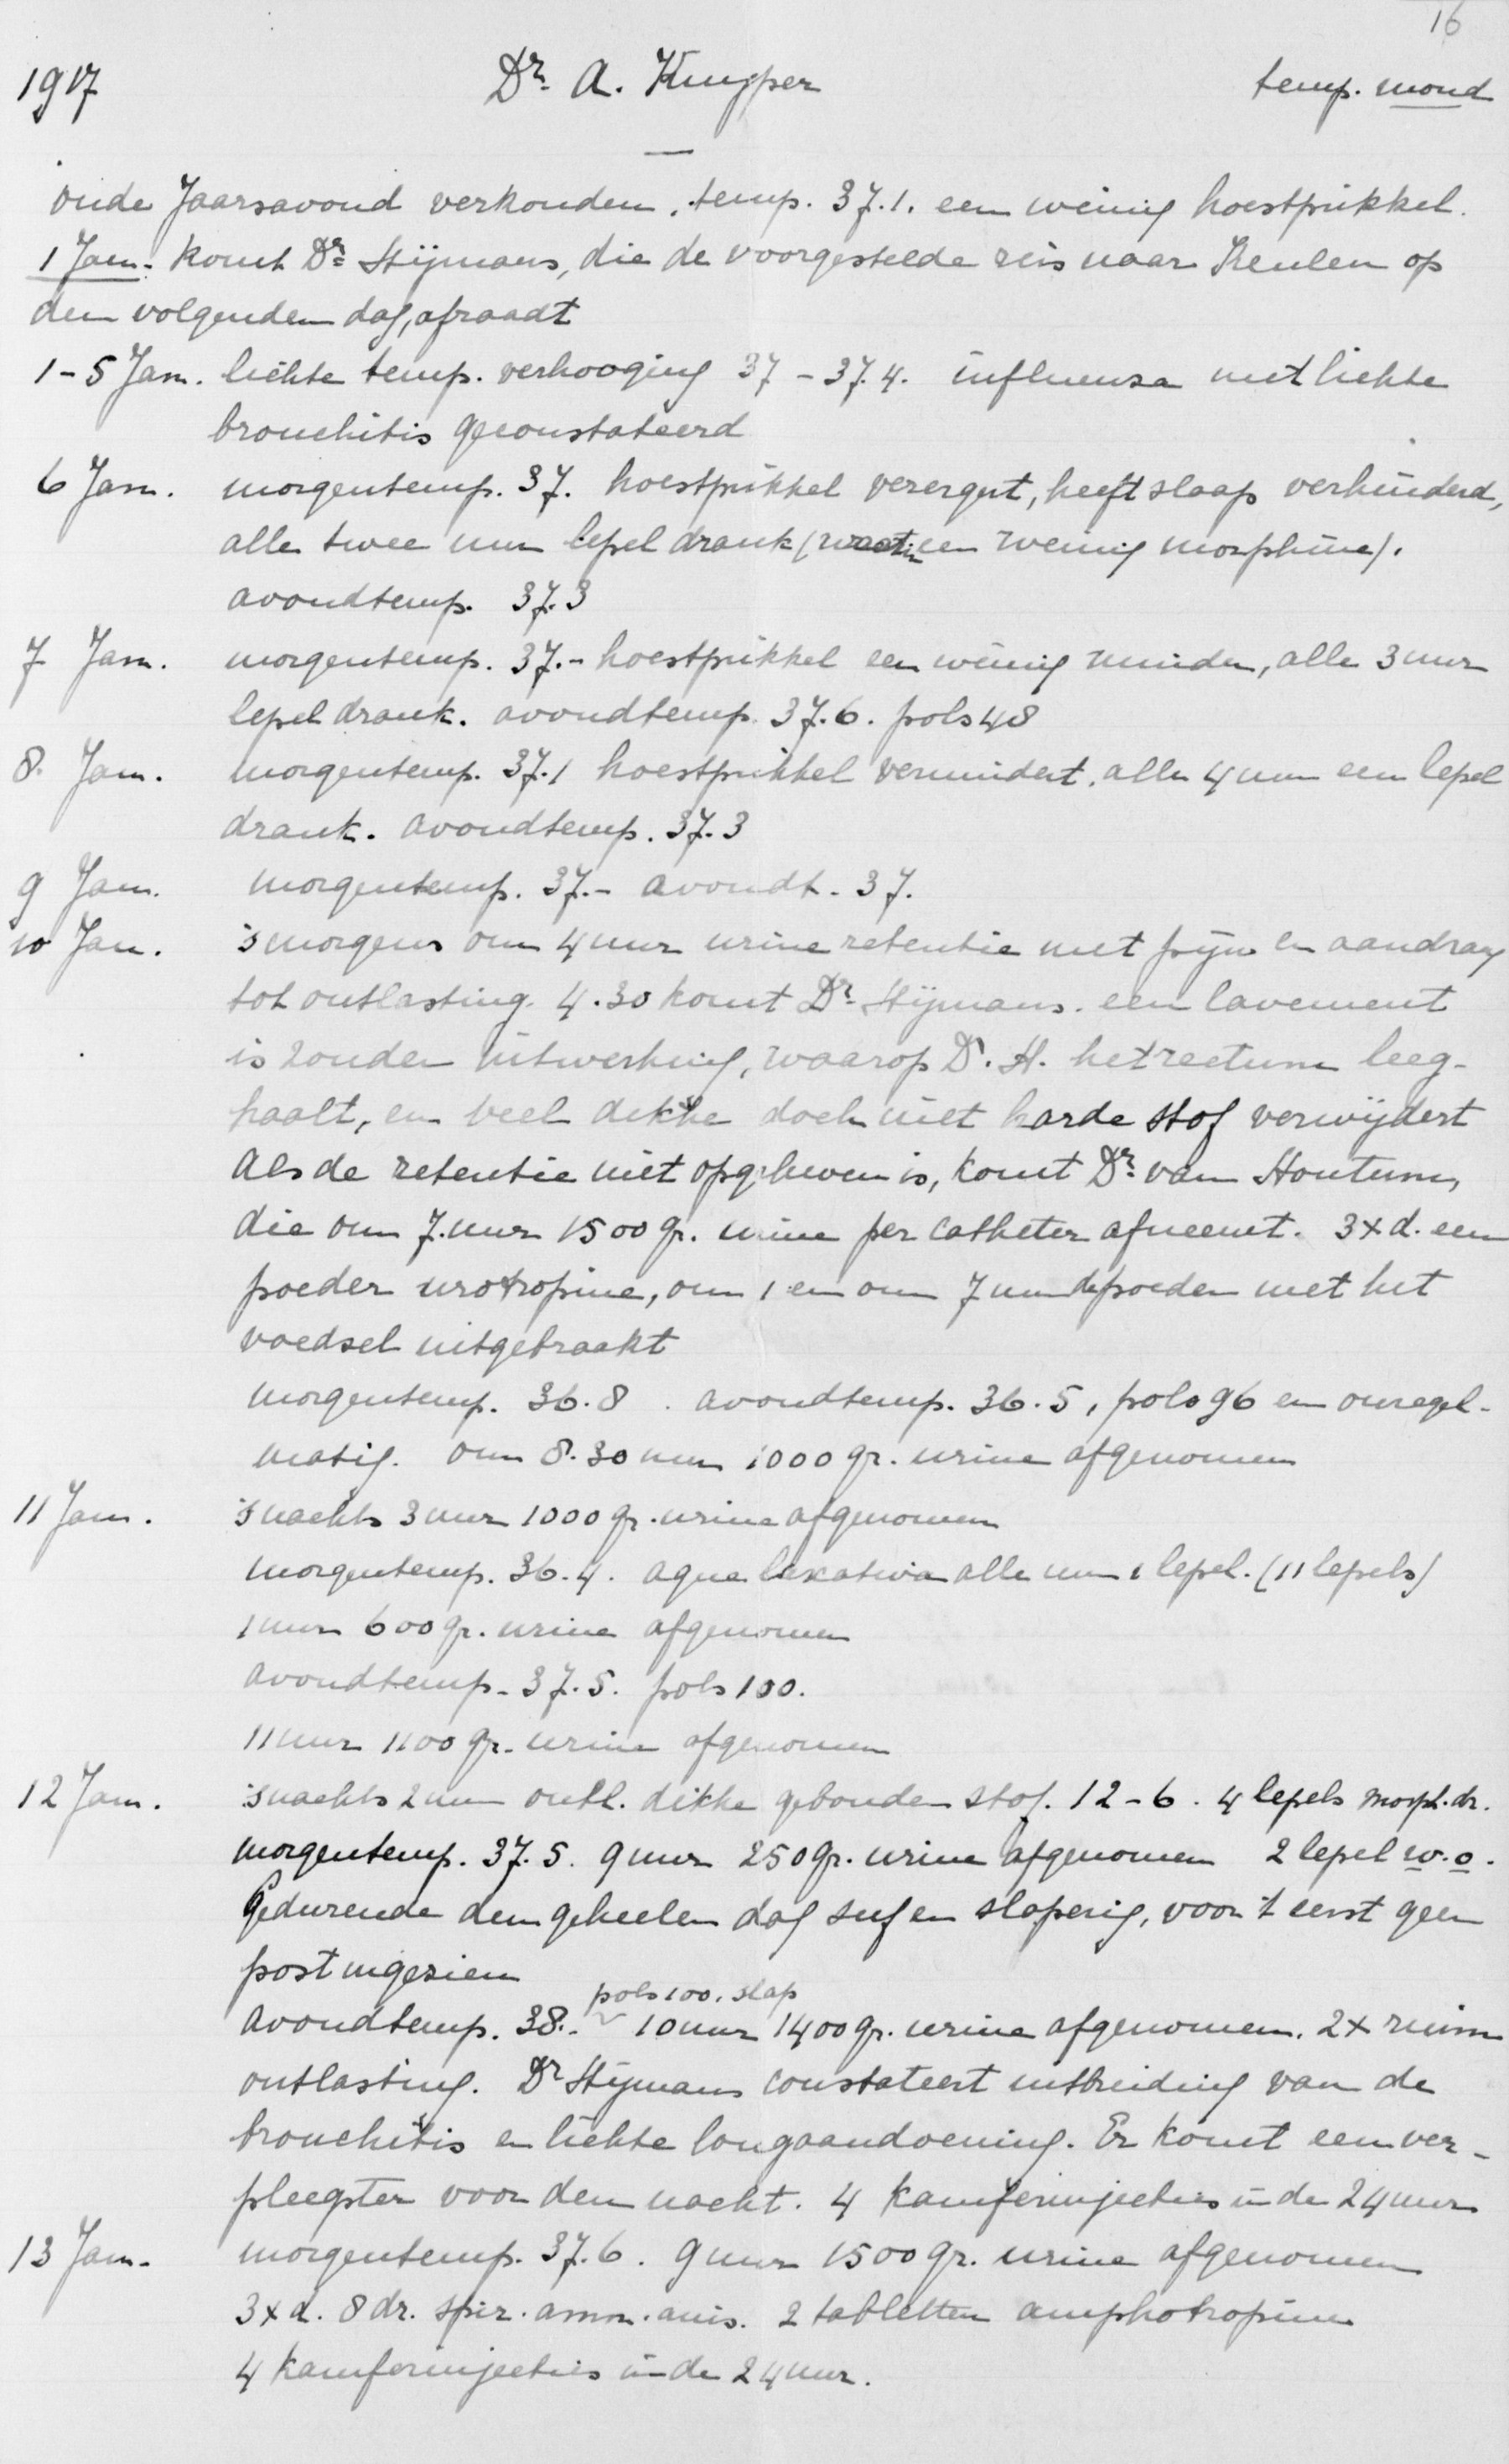 16
1917 Dr. A. Kuyper temp. mond
oude Jaarsavond verkouden. temp. 37.1. een weinig hoestprikkel.
1 Jan. komt Dr. Heijmans, die de voorgestelde reis naar Keulen op
den volgenden dag, afraadt
1-5 Jan. lichte temp. verhooging 37 - 37.4. influenza met lichte
bronchitis geconstateerd
6 Jan. morgentemp. 37. hoestprikkel verergert, heeft slaap verhinderd,
alle twee uur lepel drank (waarin een weinig morphine).
avondtemp. 37.3
7 Jan. morgentemp. 37.- hoestprikkel een weinig minder, alle 3 uur
lepel drank. avondtemp. 37.6. pols 48
8. Jan. morgentemp. 37.1 hoestprikkel vermindert. alle 4 uur een lepel
drank. avondtemp. 37.3
9 Jan. morgentemp. 37.- avondt. 37.
10 Jan. 's morgens om 4 uur urine retentie met pijn en aandrang
tot ontlasting. 4.30 komt Dr. Heijmans. een lavement
is zonder uitwerking, waarop Dr. H. het rectum leeg-
haalt, en veel dikke doch niet harde stof verwijdert
Als de retentie niet opgeheven is, komt Dr. van Houtum,
die om 7. uur 1500 gr. urine per catheter afneemt. 3 x d. een
poeder urotropine, om 1 en om 7 uur de poeder met het
voedsel uitgebraakt
morgentemp. 36.8. avondtemp. 36.5, pols 96 en onregel-
matig. om 8.30 uur 1000 gr. urine afgenomen
11 Jan. 's nachts 3 uur 1000 gr. urine afgenomen
morgentemp. 36.4. aqua laxativa alle uur 1 lepel. (11 lepels)
1 uur 600 gr. urine afgenomen
avondtemp. 37.5. pols 100.
11 uur 1100 gr. urine afgenomen
12 Jan. 's nachts 2 uur ontl. dikke gebonden stof. 12-6. 4 lepels morph. dr.
morgentemp. 37.5. 9 uur 250 gr. urine afgenomen 2 lepel w.o.
Gedurende den geheelen dag suf en slaperig, voor 't eerst geen
post ingezien
pols 100. slap
avondtemp. 38.- 10 uur 1400 gr. urine afgenomen. 2 x ruim
ontlasting. Dr Heijmans constateert uitbreiding van de
bronchitis en lichte longaandoening. Er komt een ver-
pleegster voor den nacht. 4 kamferinjecties in de 24 uur
13 Jan. morgentemp. 37.6. 9 uur 1500 gr. urine afgenomen
3 x d. 8 dr. spir. amm. anis. 2 tabletten amphotropine
4 kamferinjecties in de 24 uur.